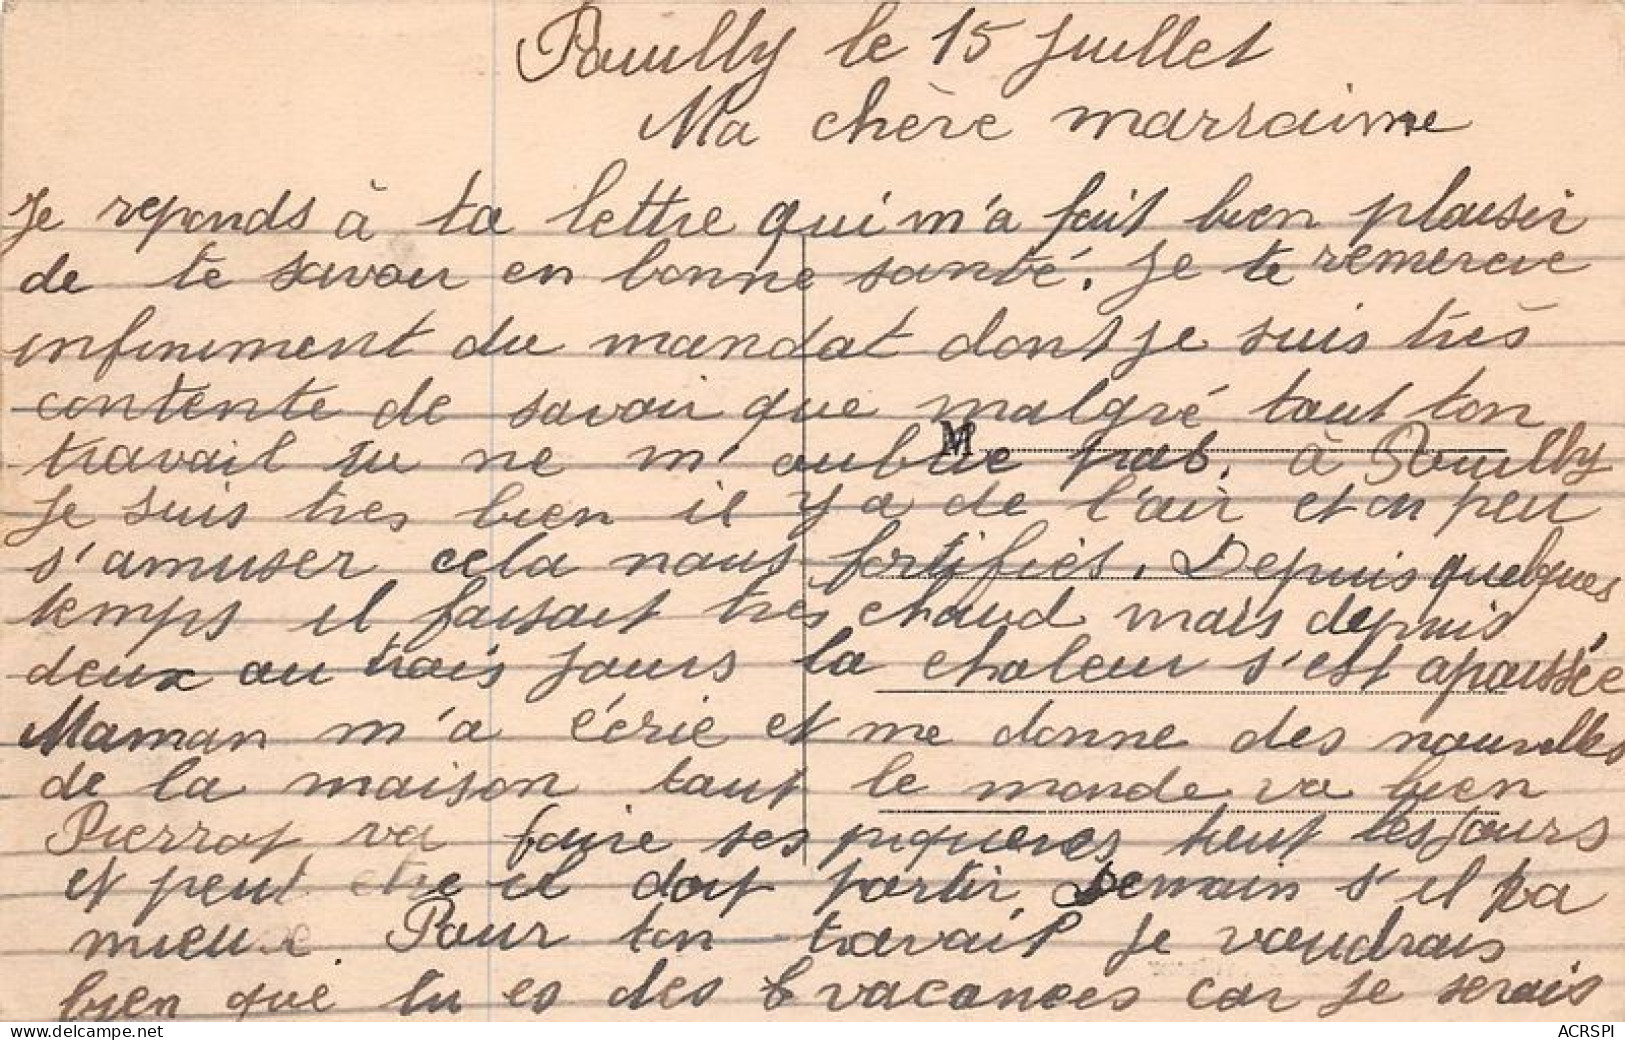 Pouilly le 15 juillet
Ma chère marraine
Je reponds à ta lettre qui m'a fait bien plaisir
de te savoir en bonne santé. Je te remercie
infiniment du mandat dont je suis très
contente de savoir que malgré tout ton
travail tu ne m'oublie pas. à Pouilly
M
je suis tres bien il y a de l'air et on peu
s'amuser cela nous fortifies. Depuis quelques
temps il faisait très chaud mais depuis
deux ou trois jours la chaleur s'est apaissée
Maman m'a éérie et me donne des nouvelles
de la maison tout le monde va bien
Pierrot va faire ses piqueres tout les jours
et peut etre il doit partir Demain s'il va
mieux. Pour ton travail je voudrais
bien que tu es des vacances car je serais
www.delcampe.net
ACRSPI